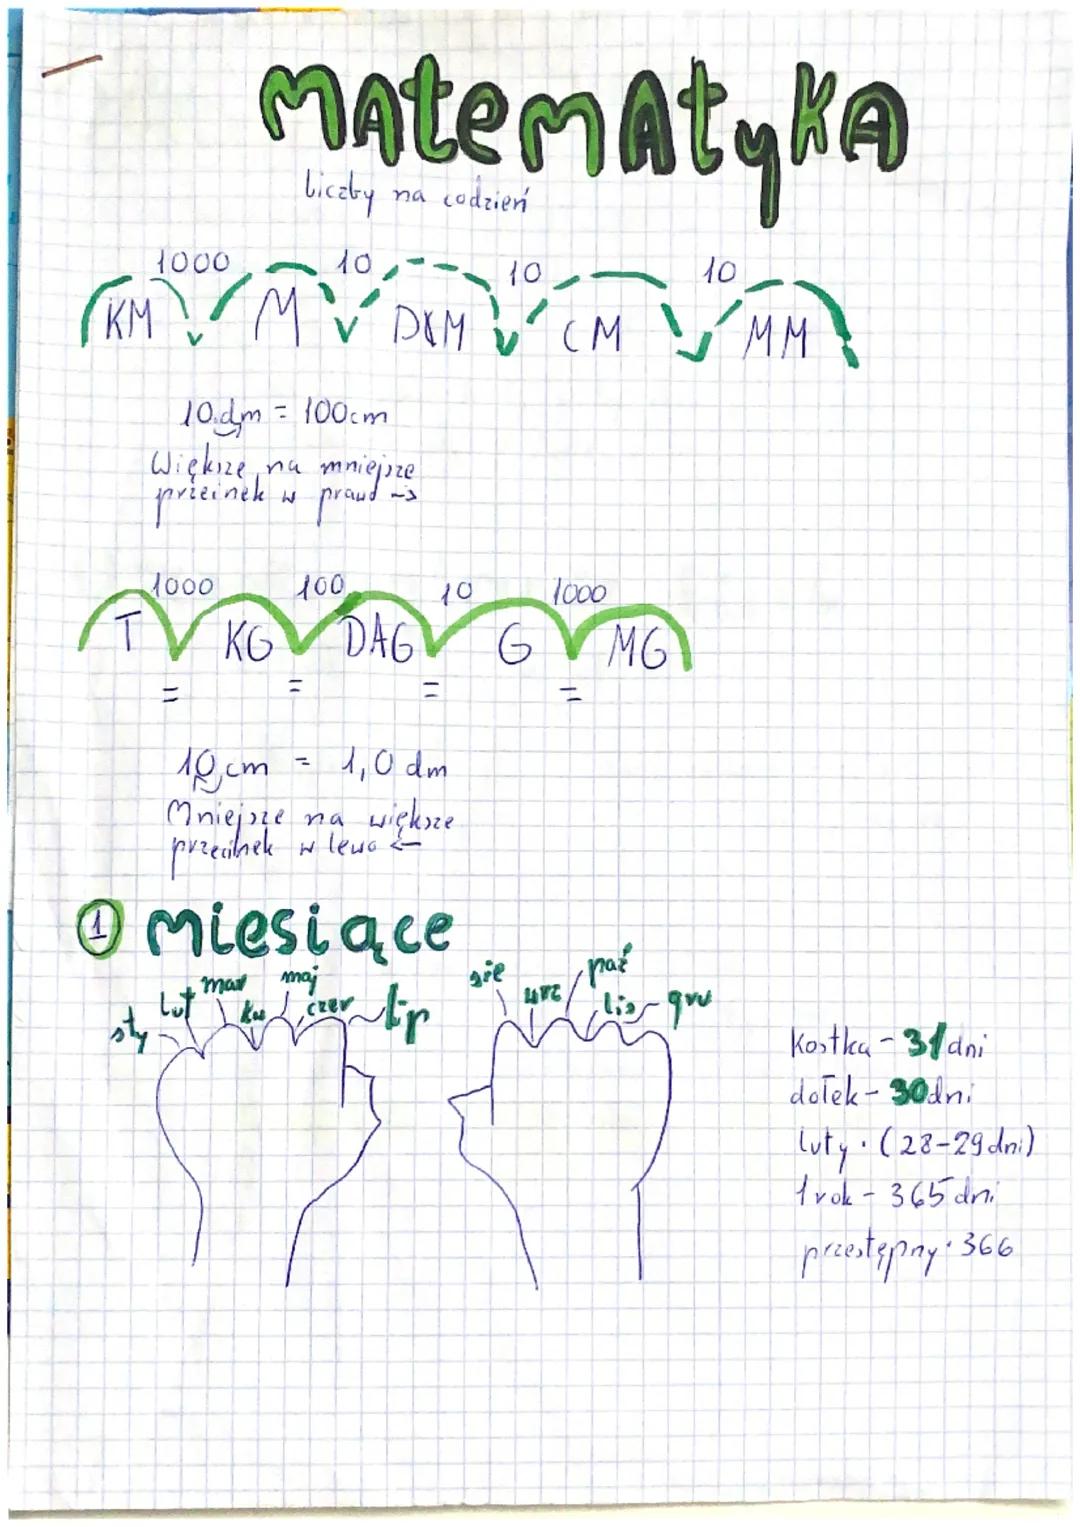 MAtemAtyKA
liczby na codzień
1000 10 10 10
KM M DM CM MM
10dm = 100cm
Większe na mniejsze
przeinek w prawo ->
1000 100 10 1000
T KG DAG G MG
= = = =
10,cm = 1,0 dm
Mniejsze na większe
przecinek w lewo <-
1 miesiące
sty lut mar kw maj czer lip sie wrz paź lis gru
Kostka - 31 dni
dołek - 30 dni
luty · (28-29 dni)
1 rok - 365 dni
przestępny · 366